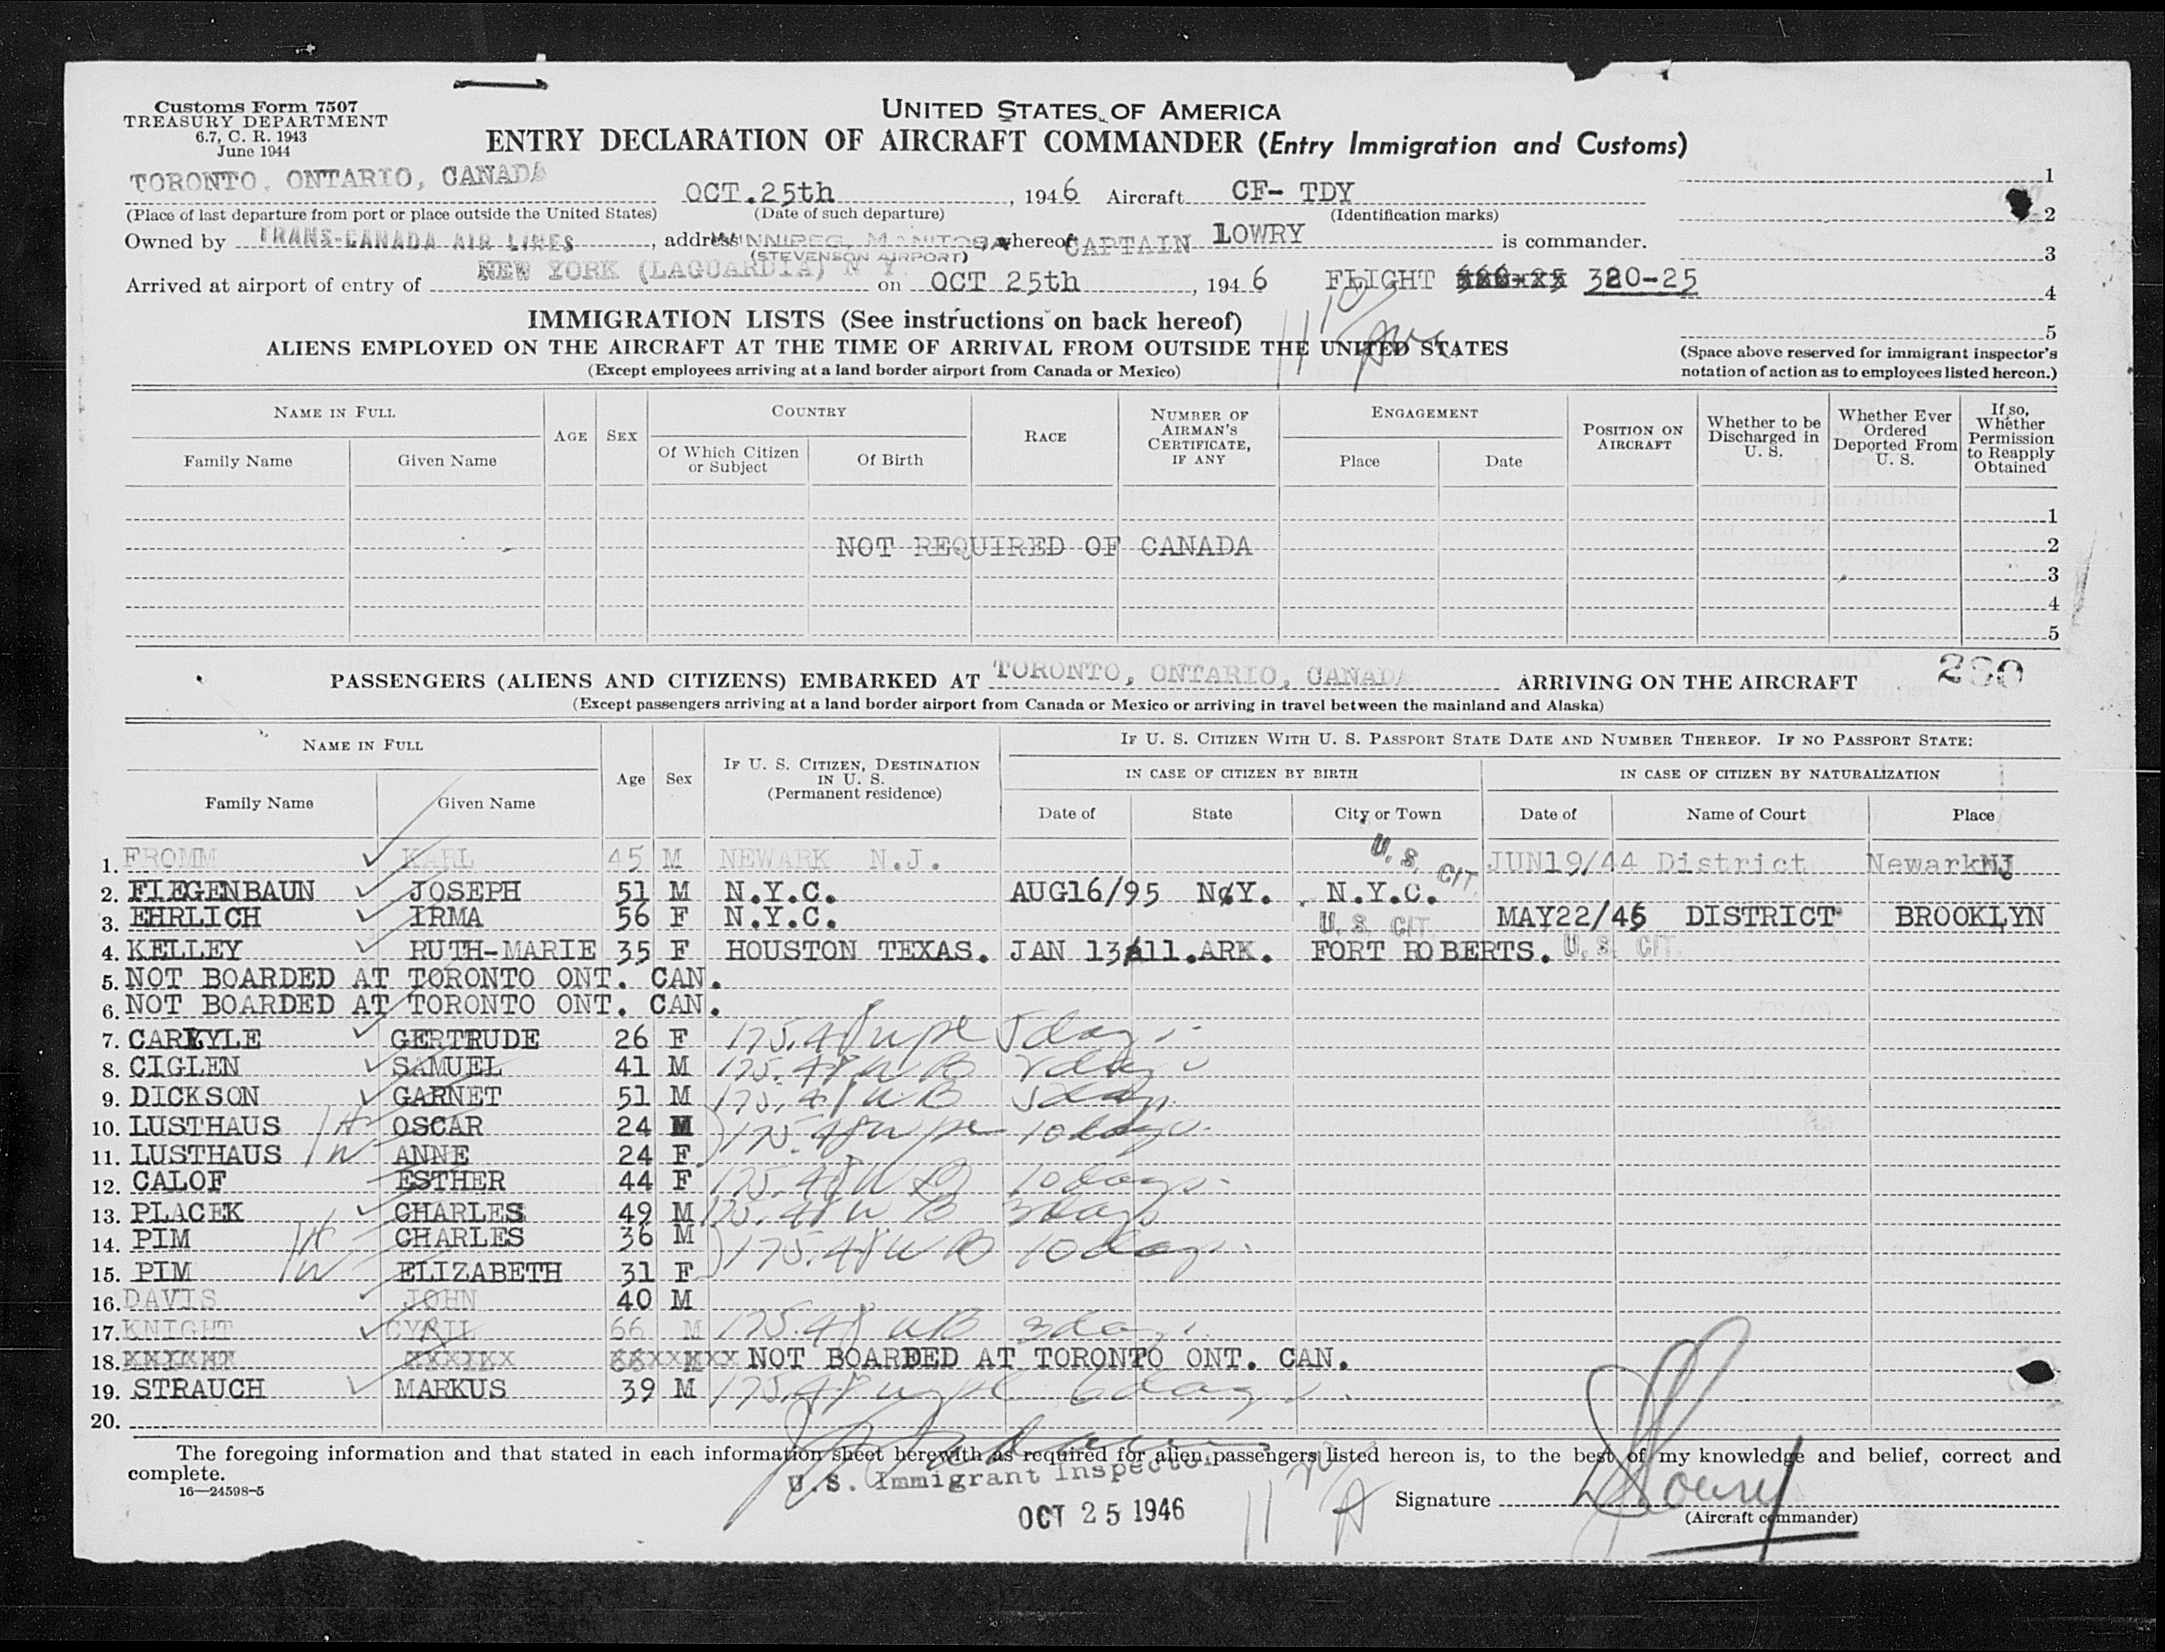 Customs Form 7507
TREASURY DEPARTMENT
6.7, C. R. 1943
June 1944
UNITED STATES OF AMERICA
ENTRY DECLARATION OF AIRCRAFT COMMANDER (Entry Immigration and Customs)
TORONTO, ONTARIO, CANADA OCT.25th, 1946 Aircraft CF- TDY 1
(Place of last departure from port or place outside the United States) (Date of such departure) (Identification marks) 2
Owned by TRANS-CANADA AIR LINES, address WINNIPEG, MANITOBA, whereof CAPTAIN LOWRY is commander. 3
(STEVENSON AIRPORT)
Arrived at airport of entry of NEW YORK (LAGUARDIA) N Y. on OCT 25th, 1946 FLIGHT 320-25 4
IMMIGRATION LISTS (See instructions on back hereof) 5
ALIENS EMPLOYED ON THE AIRCRAFT AT THE TIME OF ARRIVAL FROM OUTSIDE THE UNITED STATES
(Except employees arriving at a land border airport from Canada or Mexico)
(Space above reserved for immigrant inspector's
notation of action as to employees listed hereon.)
NAME IN FULL AGE SEX COUNTRY RACE NUMBER OF AIRMAN'S CERTIFICATE, IF ANY ENGAGEMENT POSITION ON AIRCRAFT Whether to be Discharged in U. S. Whether Ever Ordered Deported From U. S. If so, Whether Permission to Reapply Obtained
Family Name Given Name Of Which Citizen or Subject Of Birth Place Date
1
NOT REQUIRED OF CANADA 2
3
4
5
PASSENGERS (ALIENS AND CITIZENS) EMBARKED AT TORONTO, ONTARIO, CANADA ARRIVING ON THE AIRCRAFT
(Except passengers arriving at a land border airport from Canada or Mexico or arriving in travel between the mainland and Alaska)
NAME IN FULL Age Sex IF U. S. CITIZEN, DESTINATION IN U. S. (Permanent residence) IF U. S. CITIZEN WITH U. S. PASSPORT STATE DATE AND NUMBER THEREOF. IF NO PASSPORT STATE:
IN CASE OF CITIZEN BY BIRTH IN CASE OF CITIZEN BY NATURALIZATION
Family Name Given Name Date of State City or Town Date of Name of Court Place
1. FROMM KARL 45 M NEWARK N.J. U. S. CIT. JUN19/44 District Newark NJ
2. FIEGENBAUN JOSEPH 51 M N.Y.C. AUG16/95 N.Y. N.Y.C.
3. EHRLICH IRMA 56 F N.Y.C. U. S. CIT. MAY22/45 DISTRICT BROOKLYN
4. KELLEY RUTH-MARIE 35 F HOUSTON TEXAS. JAN 13/11.ARK. FORT ROBERTS. U. S. CIT.
5. NOT BOARDED AT TORONTO ONT. CAN.
6. NOT BOARDED AT TORONTO ONT. CAN.
7. CARLYLE GERTRUDE 26 F 175.48 5 days
8. CIGLEN SAMUEL 41 M 175.48 WB 2 days
9. DICKSON GARNET 51 M 175.48 WB 5 days
10. LUSTHAUS H OSCAR 24 M 175.48 10 days
11. LUSTHAUS W ANNE 24 F
12. CALOF ESTHER 44 F 175.48 WB 10 days
13. PLACEK CHARLES 49 M 175.48 WB 3 days
14. PIM H CHARLES 36 M 175.48 WB 10 days
15. PIM W ELIZABETH 31 F
16. DAVIS JOHN 40 M
17. KNIGHT CYRIL 66 M 175.48 WB 3 days
18. NOT BOARDED AT TORONTO ONT. CAN.
19. STRAUCH MARKUS 39 M 175.48 6 days
20.
The foregoing information and that stated in each information sheet herewith as required for alien passengers listed hereon is, to the best of my knowledge and belief, correct and
complete.
16—24598-5
U.S. Immigrant Inspector
OCT 25 1946
Signature Lowry
(Aircraft commander)